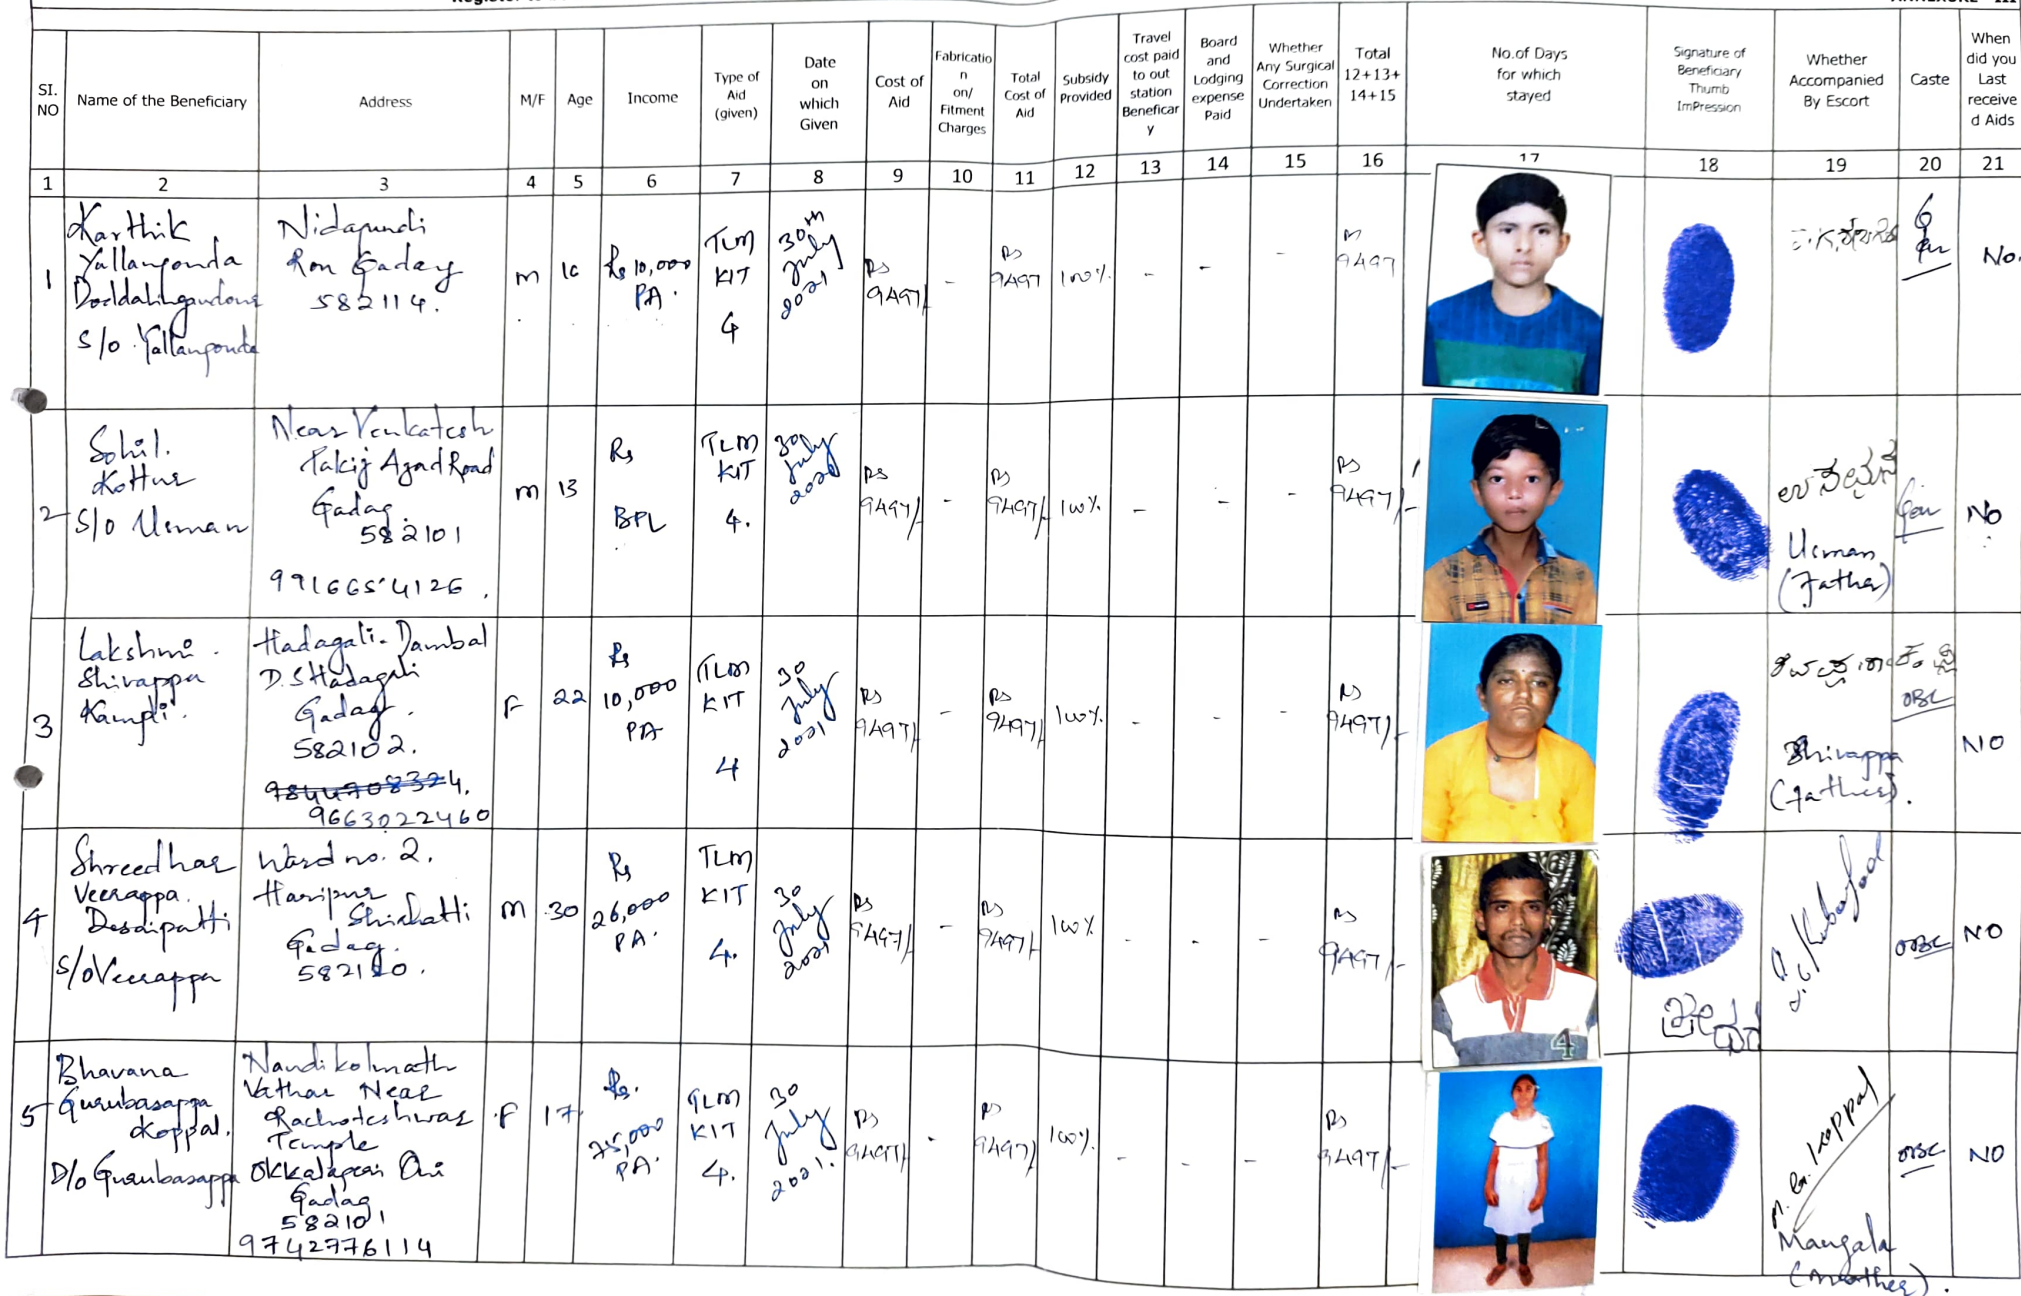 SI. NO
Name of the Beneficiary
Address
M/F
Age
Income
Type of
Aid
(given)
Date
on
which
Given
Cost of
Aid
Fabricatio
n
on/
Fitment
Charges
Total
Cost of
Aid
Subsidy
Provided
Travel
cost paid
to out
station
Beneficar
y
Board
and
Lodging
expense
Paid
Whether
Any Surgical
Correction
Undertaken
Total
12+13+
14+15
No.of Days
for which
stayed
Signature of
Beneficiary
Thumb
ImPression
Whether
Accompanied
By Escort
Caste
When
did you
Last
receive
d Aids
1 2 3 4 5 6 7 8 9 10 11 12 13 14 15 16 17 18 19 20 21
1
Karthik
Yallangonda
S/o Yallangonda
Ron Gadag
582114.
m
Rs 10,000
PA.
TLM
KIT
4
30th
July
2021
Rs
9497/
-
Rs
9497
100%
-
-
-
9497
No.
2
Sohil.
Kottur
S/o Usman
Near Venkatesh
Takij Azad Road
Gadag.
582101
9916654126.
m
13
Rs
BPL
TLM
KIT
4.
30
July
Rs
9497/-
-
Rs
9497/-
100%
-
-
-
Rs
9497/-
Usman
(Father)
No
3
Lakshmi.
Shivappa
Kampli.
Hadagali-Dambal
D.S Hadagali
Gadag.
582102.
9663022460
F
22
Rs
10,000
PA
TLM
KIT
4
30
July
2021
Rs
9497/-
-
Rs
9497/-
100%
-
-
-
Rs
9497/-
Shivappa
(father).
OBC
NO
4
Shreedhar
Veerappa.
Desaipatti
S/o Veerappa
Ward no. 2.
Haripur
Shirahatti
Gadag.
m
30
Rs
26,000
PA.
TLM
KIT
4.
30
July
2021
Rs
9497/-
-
Rs
9497/-
100%
-
-
-
Rs
9497/-
4
OBC
NO
5
Bhavana
Gurubasappa
Koppal.
D/o Gurubasappa
Nandikolmath
Vathar Near
Rachoteshwar
Temple
Gadag
582101
9742776114
F
17
Rs.
PA.
TLM
KIT
4.
30
July
2021.
Rs
9497/
-
Rs
9497/-
100%
-
-
-
Rs
9497/-
M. G. Koppal
Mangala
(mother).
OBC
NO